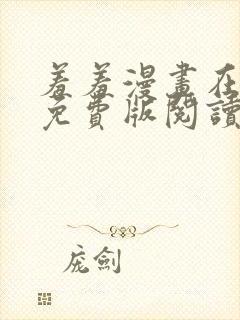 羞羞漫畫在
免費版閱讀
庞劍